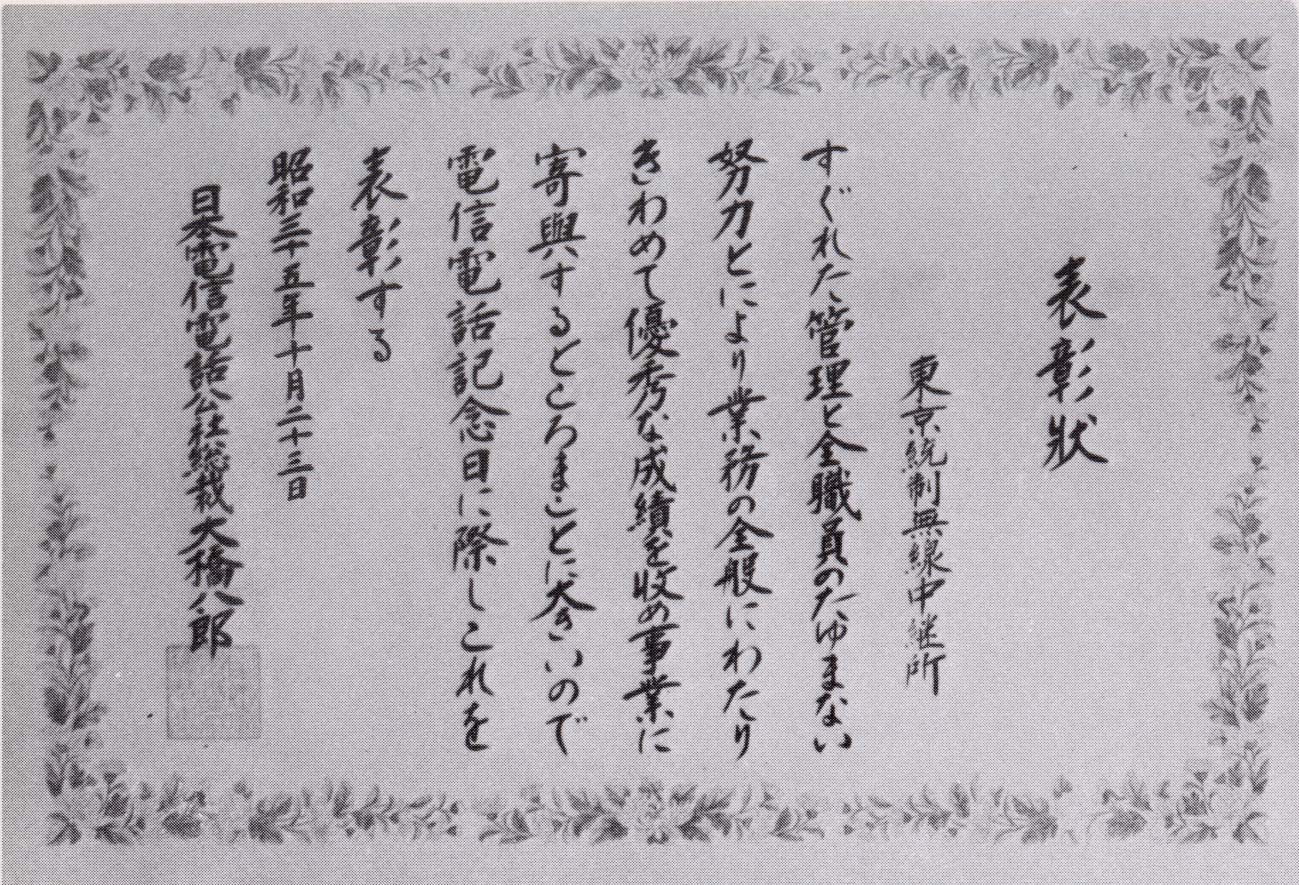 表彰状
東京統制無線中継所
すぐれた管理と全職員のたゆまない
努力とにより業務の全般にわたり
きわめて優秀な成績を収め事業に
寄與するところまことに大きいので
電信電話記念日に際しこれを
表彰する
昭和三十五年十月二十三日
日本電信電話公社総裁大橋八郎